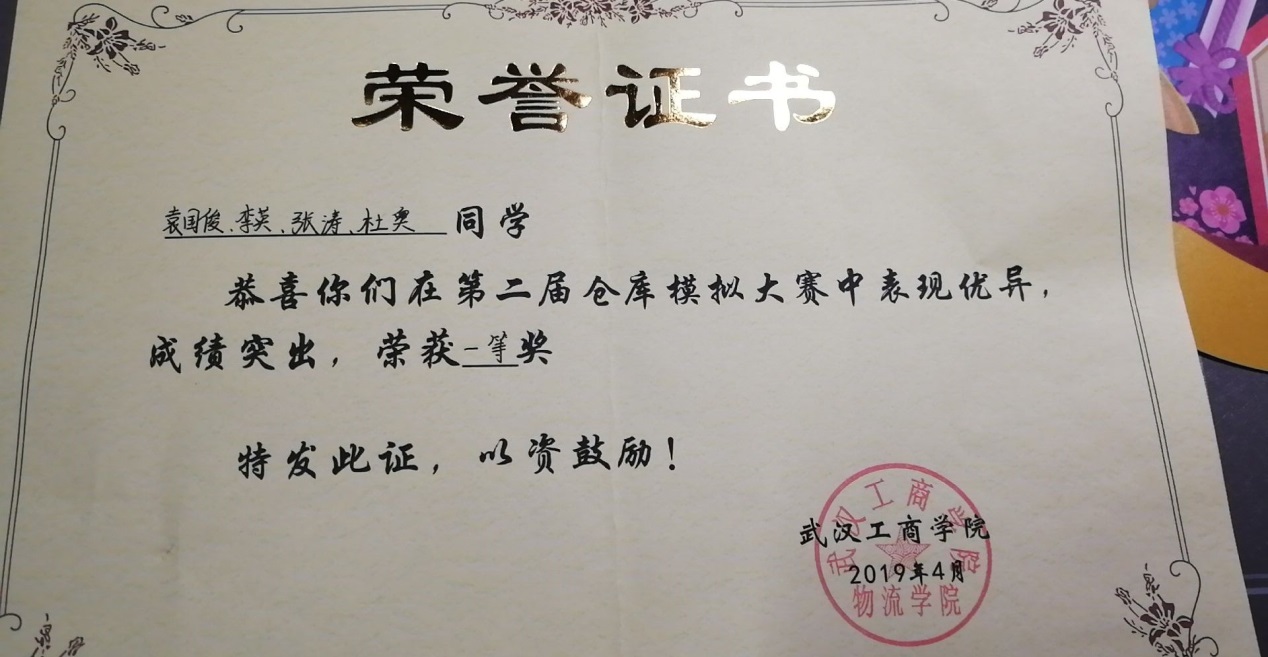 荣誉证书
袁国俊、李英、张涛、杜奥 同学
恭喜你们在第二届仓库模拟大赛中表现优异，
成绩突出，荣获一等奖
特发此证，以资鼓励！
武汉工商学院
武汉工商学院
2019年4月
物流学院